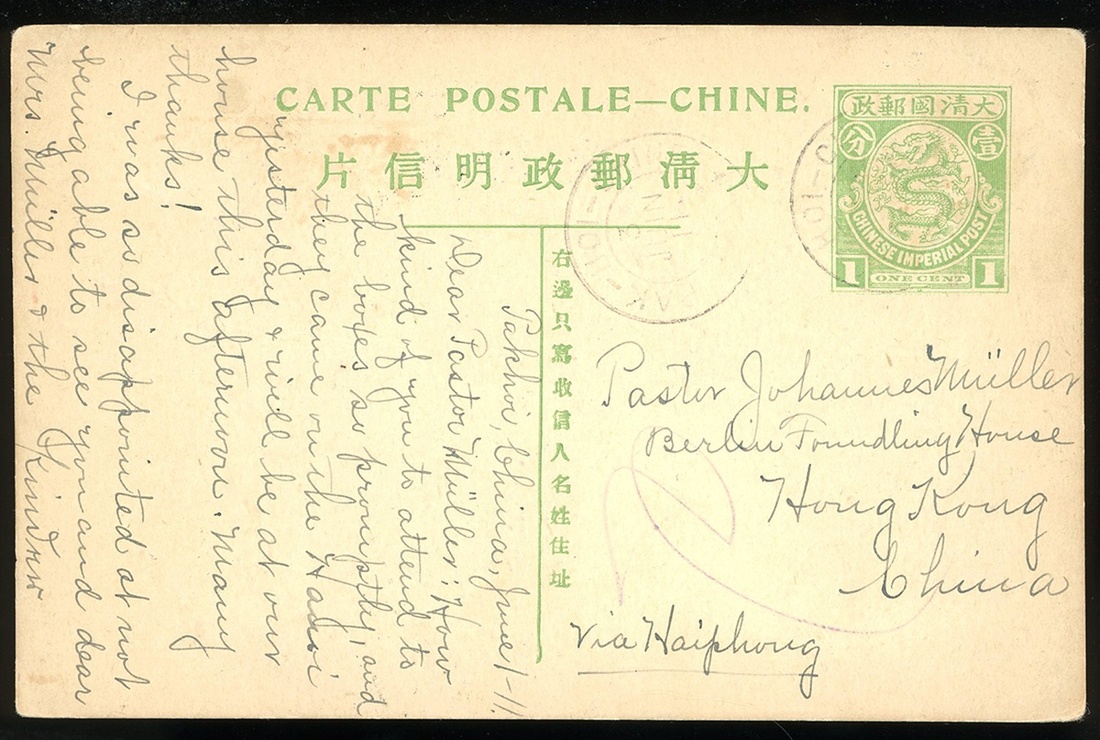 CARTE POSTALE—CHINE.
片信明政郵清大
政郵國清大
分
壹
CHINESE IMPERIAL POST
1 ONE CENT 1
HOI-
PAK-HOI
右邊只寫收信人名姓住址
Pastor Johannes Müller
Berlin Foundling House
Hong Kong
China
Via Haiphong
Pakhoi, China, June 1-11.
Dear Pastor Müller: How
kind of you to attend to
the boxes so promptly, and
they came on the Hanoi
yesterday & will be at our
house this afternoon. Many
thanks!
I was so disappointed at not
being able to see you and dear
Mrs. Müller & the Kinder